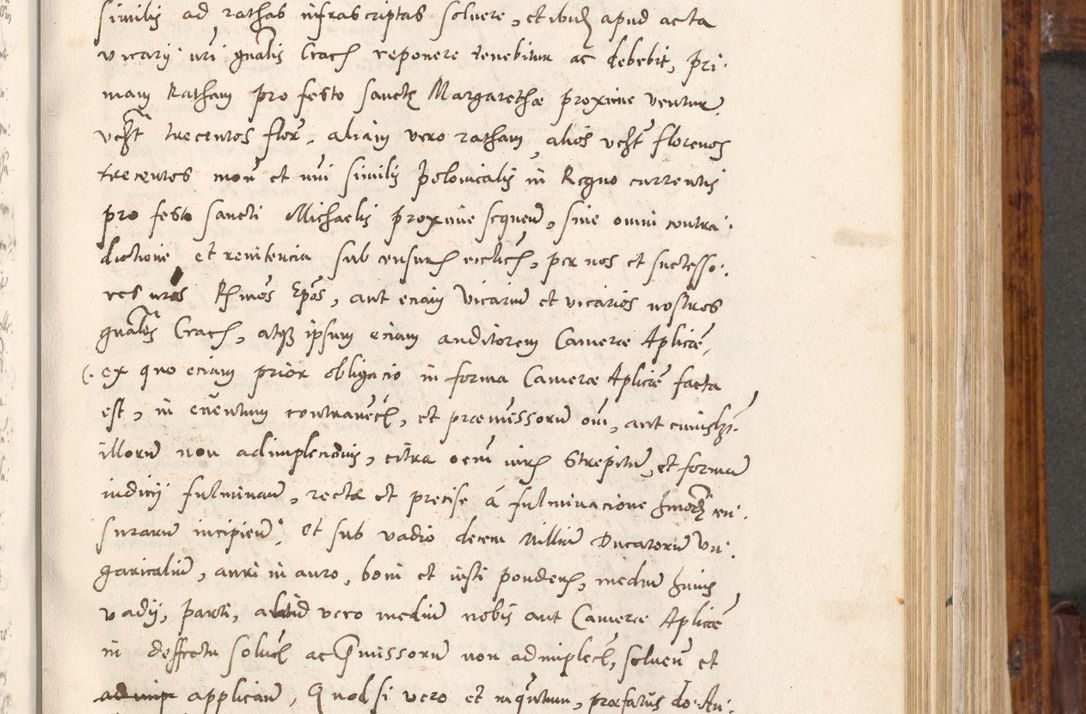 similis ad rathas infrascriptas soluere, et ibidē apud acta
vicarij nri gnalis Crac̄ reponere tenebitur ac debebit, pri:
mam Ratham pro festo sanctę Margarethæ proxime ventur
vc̄ȥt trecentos flor., aliam vero ratham, alios vc̄ȥt florenos
trecentos mon et nri similis Polonicalis in Regno currentis
pro festo sancti Michaelis proxime sequen̄, sine omni contra:
dictione et renitencia sub censuris ecclicis, per nos et successo:
res nros R̄mos Ep̄os, aut eciam Vicarium et vicarios nostros
gnales Crac̄, atqȝ ipsum eciam auditorem Cameræ Aplicæ,
ex quo eciam prior obligacio in forma Cameræ Aplicæ facta
est, in euentum contrauēc̄, et præmissorū om̄, aut cuiuslȝt
illorū non adimplendis, citra oem iuris Strepitū, et formā
iudicij fulminan̄, recta et precise á fulminacione hmōi cen:
surarū incipien̄: Et sub vadio decem Milliū Ducatorū Vn:
garicaliū, auri in auro, boni et iusti ponderis, mediū huius
vadij, parti, aliud vero mediū nobis aut Cameræ Aplicæ
in deffectu soluc̄ ac p̄missorū non adimplec̄, soluen̄ et
applican̄, Quod si vero et inq̄ntum, præfatus do: An: